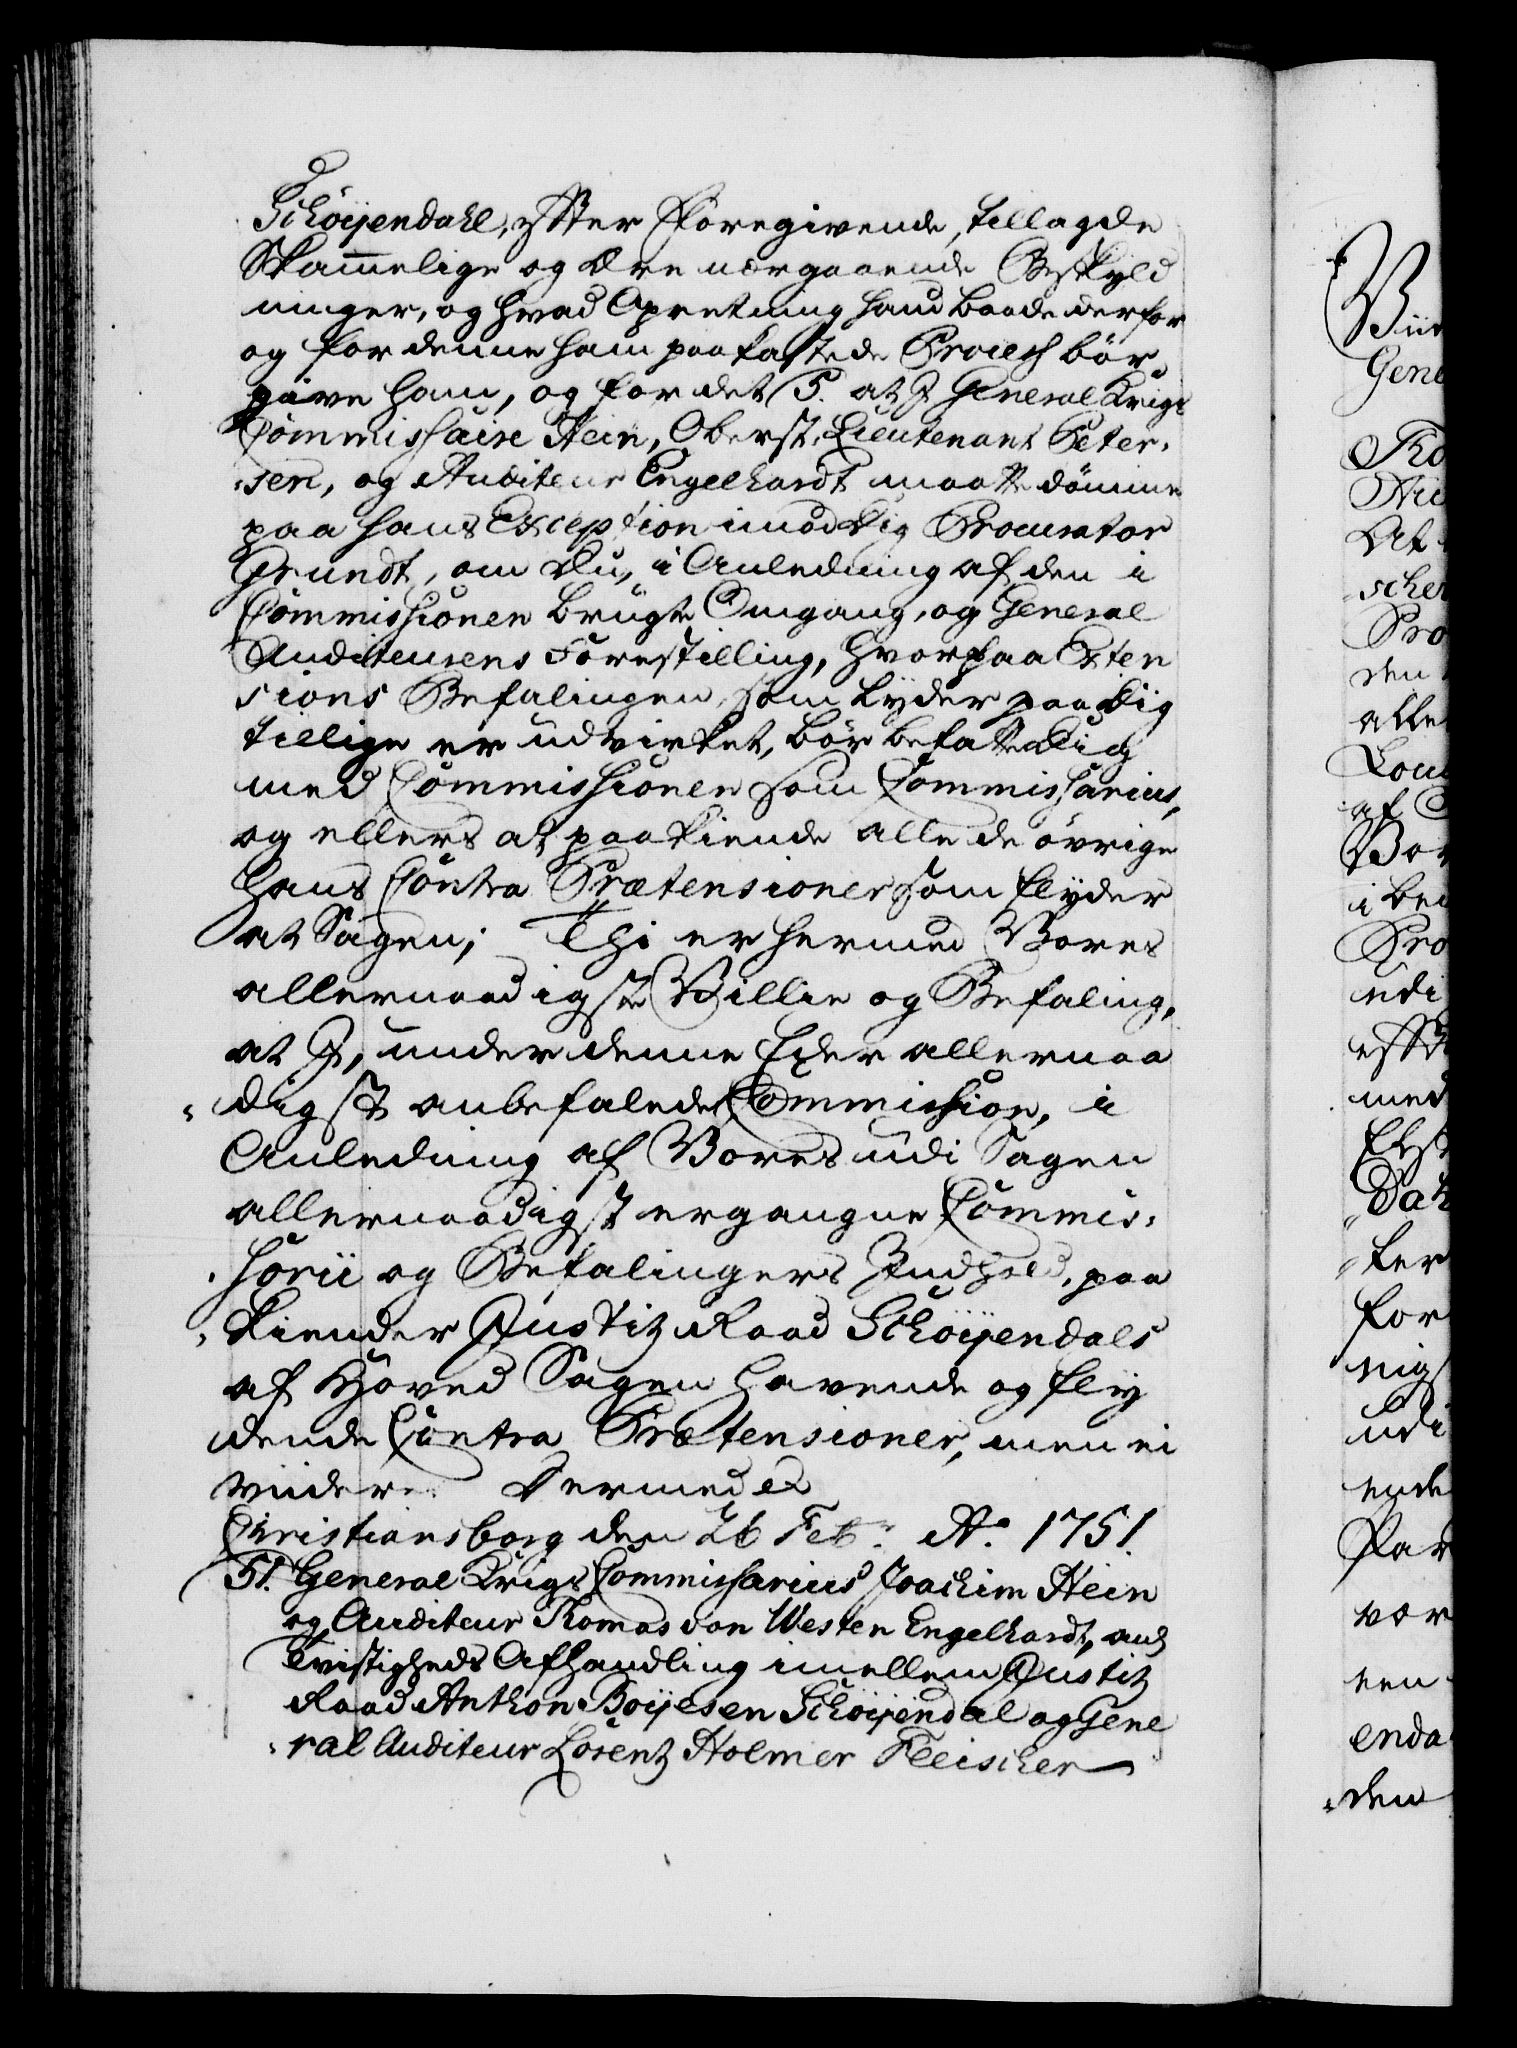 Schöÿendahl, efter foregivende, tillagde
Skammelige og Ære nærgaaende Beskyld
ninger, og hvad Opretning hand baade derfor
og for denne ham paakastede Process bör
give ham, og for det 5. at I General Krigs
Commissaire Hein, Oberst-Lieutenant Peter-
-sen, og Auditeur Engelhardt maatte dömme
paa hans Exception imod Dig Procurator
Grundt, om Du, i Anledning af den i
Commissionen brugte Omgang, og General
Auditeurens Forestilling, hvorpaa Exten
sions Befalingen, som lyder paa Dig
tillige er udvirket, bör befatte Dig
med Commissionen som Commissarius,
og ellers at paakiende alle de övrige
hans Contra Prætensioner som flyder
at Sagen; Thi er hermed Vores
allernaadigste Villie og Befaling,
at I, under denne Eder allernaa
-digst anbefalede Commission, i
Anledning af Vores udi Sagen
allernaadigst ergangne Commis-
-sorii og Befalingers Indhold, paa
-kiender Justitz Raad Schöÿendals
af Hoved Sagen havende og flÿ
dende Contra Prætensioner, men ei
viidere. Dermed &
Christiansborg den 26 Febr: Ao. 1751.
51. General Krigs Commissarius Joachim Hein
og Auditeur Thomas von Westen Engelhardt, anl
Tvistigheds Afhandling imellem Justitz
Raad Anthon Boÿesen Schöÿendal og Gene
-ral Auditeur Lorentz Holmer Fleischer
Viir
Gene
Tho
At
scher
Pro
den
alle
Lou
af
Vor
i be
Pro
udi
effte
med
Eft
Dah
fer
for
nigs
udi
ende
Par
vor
ven
enda
-den